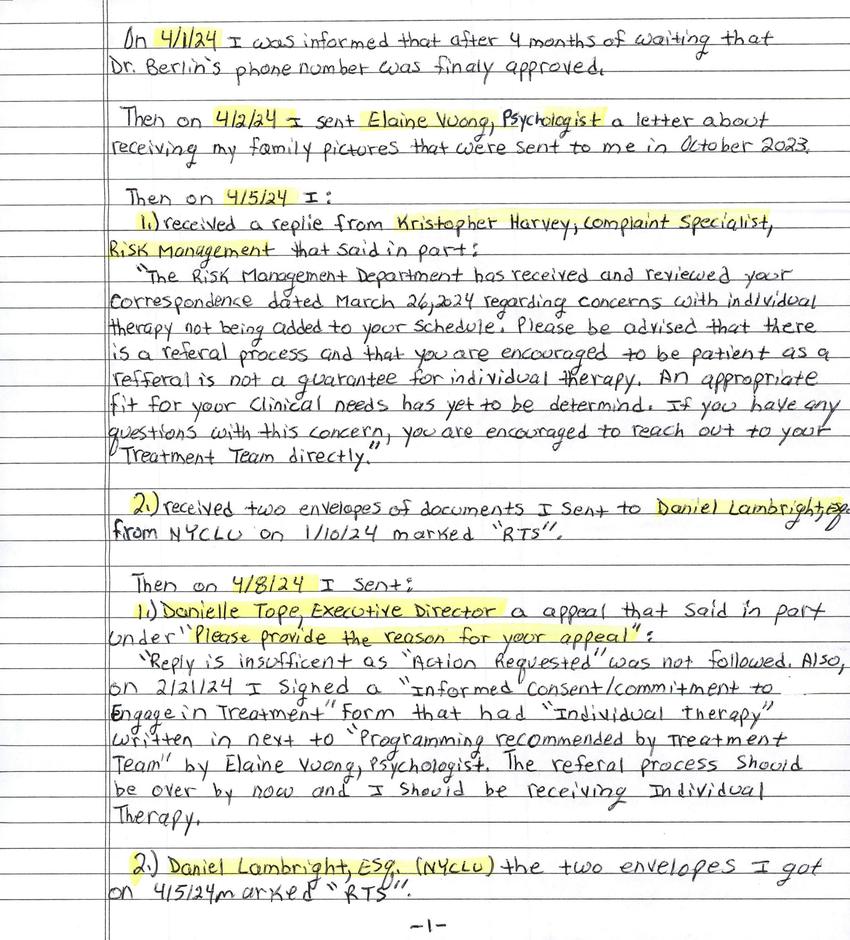 On 4/1/24 I was informed that after 4 months of waiting that
Dr. Berlin's phone number was finaly approved.
Then on 4/2/24 I sent Elaine Vuong, Psychologist a letter about
receiving my family pictures that were sent to me in October 2023.
Then on 4/5/24 I:
1.) received a replie from Kristopher Harvey, Complaint Specialist,
Risk Management that said in part:
"The Risk Management Department has received and reviewed your
Correspondence dated March 26, 2024 regarding concerns with individual
therapy not being added to your schedule. Please be advised that there
is a referal process and that you are encouraged to be patient as a
refferal is not a guarantee for individual therapy. An appropriate
fit for your Clinical needs has yet to be determind. If you have any
questions with this concern, you are encouraged to reach out to your
Treatment Team directly."
2.) received two envelopes of documents I sent to Daniel Lambright, Esq.
from NYCLU on 1/10/24 marked "RTS".
Then on 4/8/24 I sent:
1.) Danielle Tope, Executive Director a appeal that said in part
under "Please provide the reason for your appeal":
"Reply is insufficent as "Action Requested" was not followed. Also,
on 2/21/24 I signed a "Informed Consent/commitment to
Engage in Treatment" form that had "Individual therapy"
written in next to "Programming recommended by Treatment
Team" by Elaine Vuong, Psychologist. The referal process should
be over by now and I should be receiving Individual
Therapy.
2.) Daniel Lambright, Esq. (NYCLU) the two envelopes I got
on 4/5/24 marked "RTS".
-1-